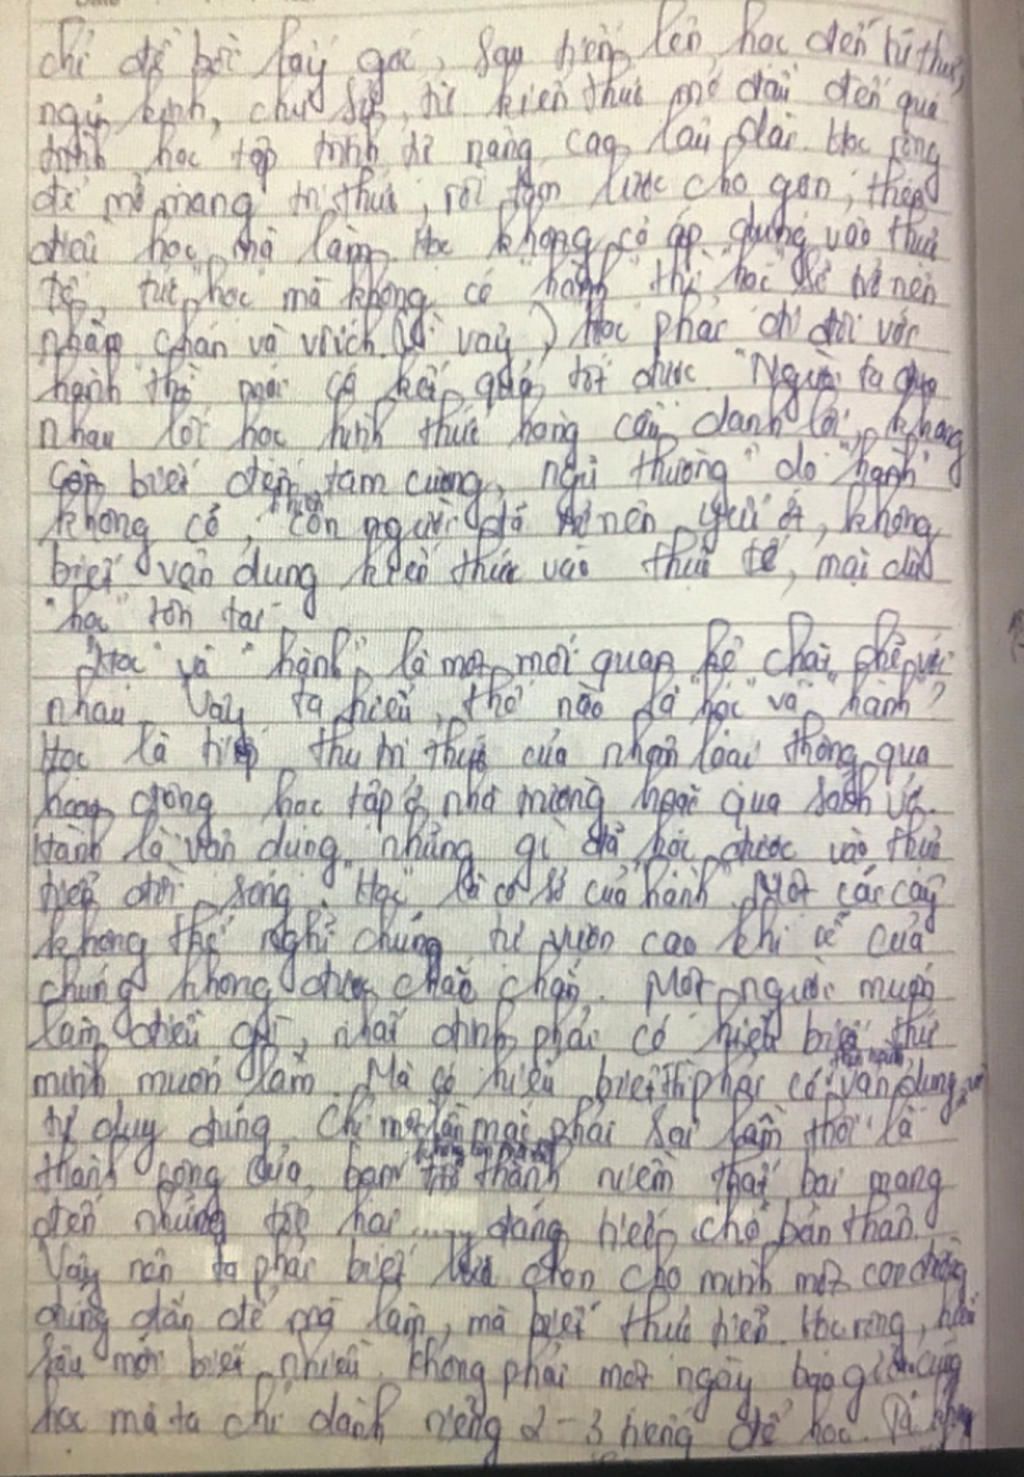 chỉ để bồi lấy gốc, sau tiến lên học đến tứ thư,
ngũ kinh, chư sử, từ kiến thức mở đầu đến quá
trình học tập nâng cao lâu dài. Học rộng
để mở mang tri thức, rồi tóm lược cho gọn, theo
điều học mà làm. Học không có áp dụng vào thực
tế, tức "học" mà không có "hành" thì "học" sẽ trở nên
nhàm chán và vô ích. (Vì vậy) Học phải đi đôi với
hành thì mới có kết quả tốt được. "Người ta đua
nhau lối học hình thức hòng cầu danh lợi, không
còn biết đến tam cương, ngũ thường" do "hành"
không có, con người đó trở nên , không
biết vận dụng kiến thức vào thực tế, mặc dù
"học" tồn tại.
"Học" và "hành" là một mối quan hệ chặt chẽ với
nhau. Vậy ta hiểu thế nào là "học" và "hành"?
Học là tiếp thu tri thức của nhân loại thông qua
hoạt động học tập ở nhà trường hoặc qua sách vở.
Hành là vận dụng những gì đã học được vào thực
tiễn đời sống. "Học" là cơ sở của "hành". Một các cây
không thể nghĩ chúng sẽ vươn cao khi rễ của
chúng không được chắc chắn. Một người muốn
làm điều gì, nhất định phải có hiểu biết thứ
mình muốn làm. Mà có hiểu biết thì phải có vận dụng, và
tư duy đúng. Chỉ một lần mắc phải sai lầm thôi là
thành công của bạn trở thành niềm thất bại mang
đến những tổn hại ..... đáng tiếc cho bản thân.
Vậy nên ta phải biết lựa chọn cho mình một con đường
đúng đắn để mà làm, mà biết thực hiện. Học rộng, hiểu
sâu mới biết nhiều. Không phải một ngày bao giờ cũng
học mà ta chỉ dành riêng 2 - 3 tiếng để học. Và